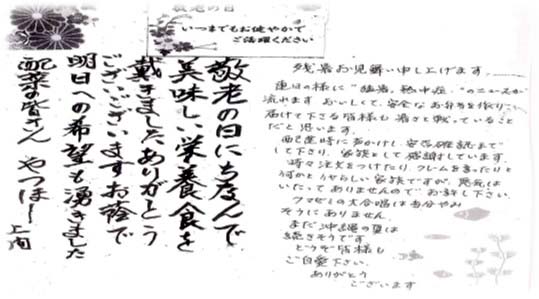 敬老の日
いつまでもお健やかで
ご活躍ください
敬老の日にちなんで
美味しい栄養食を
戴きましたありがとう
ございございますお蔭で
明日への希望も湧きました
配菜の皆さん やっほー
上間
残暑お見舞い申し上げます。
連日の様に "猛暑、熱中症、"のニュースが
流れます おいしくて、安全なお弁当を作り、
届けて下さる皆様も 暑さと戦っていること
だと思います。
配達時に声かけし、安否確認まで
して下さり、家族として感謝しています。
時々注文をつけたり、クレームを言ったりと
うるさいご家族ですが、悪気は
いたってありませんのでお許し下さい
クマゼミの大合唱は当分やみ
そうにありません。
まだ沖縄の夏は
続きそうです
どうぞ皆様も
ご自愛下さい。
ありがとう
ございます